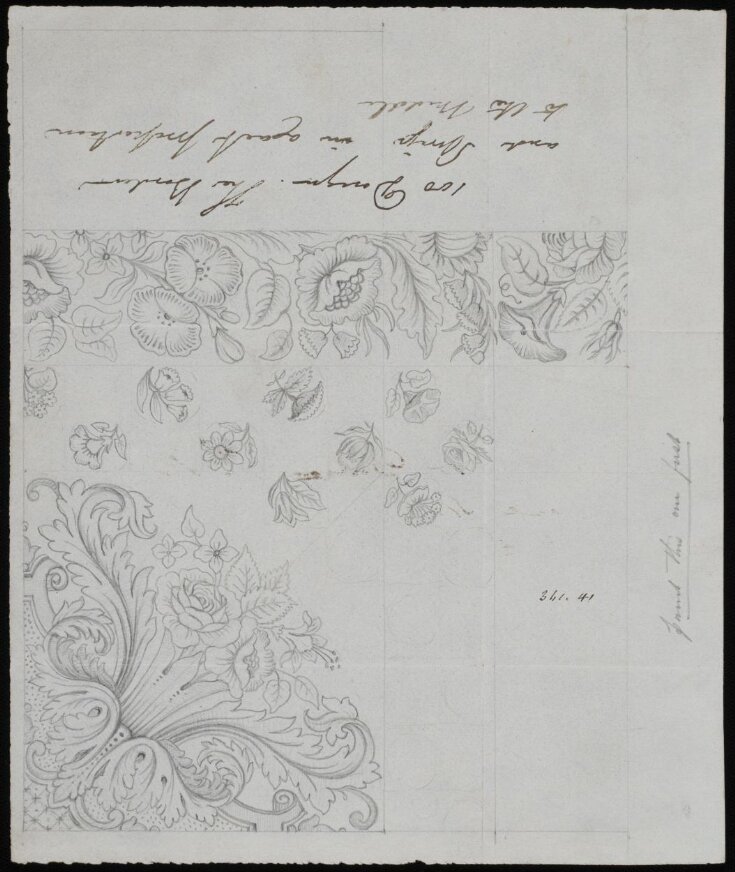 100 Design. The Border
and Sprigs in exact proportion
to the Middle
341. 41
paint this one first